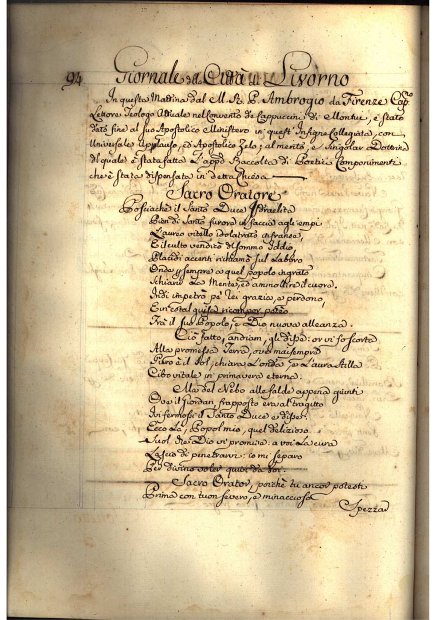 94 Giornale della Città di Livorno
In questa Mattina dal M. R. P. Ambrogio da Firenze Capno
Lettore Teologo Attuale nel Convento de Cappuccini di Montui, è stato
dato fine al suo Apostolico Ministero in quest' Insigne Collegiata, con
Universale Applauso, ed Apostolico Zelo; al merito, e Singolar Dottrina
del quale è stata fatta l'appo Raccolta di Poetici Componimenti
che è stata dispensata in detta Chiesa
Sacro Oratore
Posciachè il Santo Duce Isdraelita
Pien di Santo furore in faccia agli empi
L'aureo vitello idolatrato infranse,
E il culto vendicò di Sommo Iddio,
Placidi accenti richiamò sul Labbro
Onde sempre a quel popolo ingrato
Schiarir La Mente, ed ammollire il cuore.
Indi impetrò per lei grazia, e perdono,
E in cotal guisa ricompor poteo
Trà il suo Popolo, e Dio nuova alleanza.
Ciò fatto, andiam, gli disse: or vi fo scorta
Alla promessa Terra, ove mai sempre
Puro è il Sol, chiara L'onda, e L'aura stilla
Cibo vitale in primavera eterna.
Ma del Nebo alle falde appena giunti
Ove il Giordan frapposto era al tragitto
Ivi fermossi il Santo Duce e disse:
Ecco Là, Popol mio, quel delizioso
Suol che Dio vi promise: a voi La cura
Lascio di penetrarvi: io mi separo
Per divino voler quivi da voi.
Sacro Orator, poichè tu ancor potesti
Prima con tuon severo, e minaccioso
Spezzar